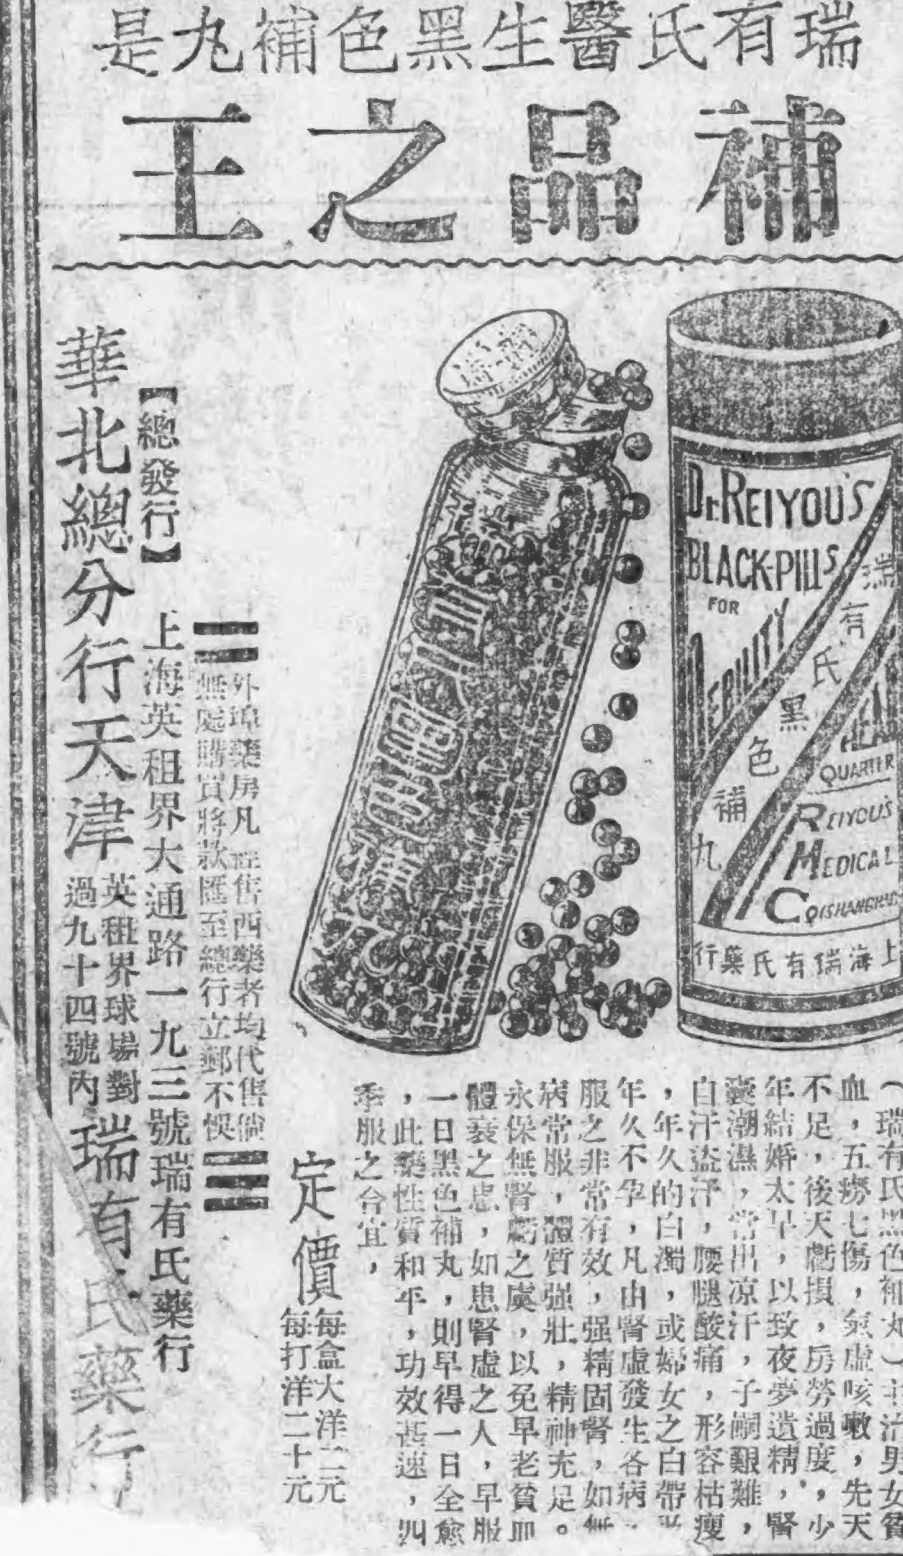 瑞有氏醫生黑色補丸是
補品之王
DR. REIYOU'S
BLACK-PILLS
FOR
DEBILITY
瑞有氏黑色補丸
HEAD
QUARTER
REIYOU'S
MEDICAL
CO SHANGHAI
上海瑞有氏藥行
(瑞有氏黑色補丸)主治男女貧
血,五癆七傷,氣虛咳嗽,先天
不足,後天虧損,房勞過度,少
年結婚太早,以致夜夢遺精,腎
囊潮濕,常出凉汗,子嗣艱難,
自汗盜汗,腰腿酸痛,形容枯瘦
,年久的白濁,或婦女之白帶
年久不孕,凡由腎虛發生各病,
服之非常有效,强精固腎,如無
病常服,體質强壯,精神充足。
永保無腎虧之虞,以免早老貧血
體衰之患,如患腎虛之人,早服
一日黑色補丸,則早得一日全愈
,此藥性質和平,功效甚速,四
季服之合宜,
定價
每盒大洋二元
每打洋二十元
外埠藥房凡售西藥者均代售倘
無處購買將款匯至總行立郵不悞
【總發行】上海英租界大通路一九三號瑞有氏藥行
華北總分行天津
英租界球場對
過九十四號內
瑞有氏藥行